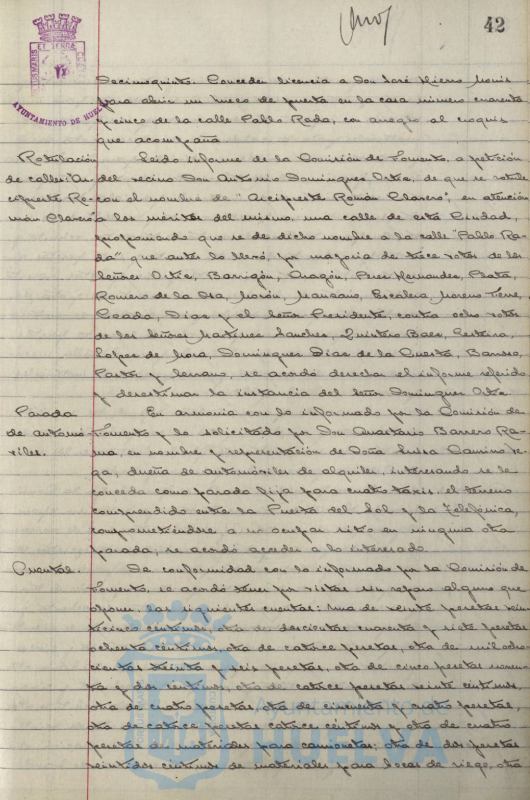 42
AYUNTAMIENTO DE HUELVA
Decimoquinto. Conceder licencia a Don José Hierro
para abrir un hueco de puerta en la casa número cuarenta
y cinco de la calle Pablo Rada, con arreglo al croquis
que acompaña.
Rotulación
de calles "Arcipreste Román Clavero"
Leído informe de la Comisión de Fomento, a petición
del vecino Don Antonio Dominguez Ortiz, de que se rotule
con el nombre de "Arcipreste Román Clavero", en atención
a los méritos del mismo, una calle de esta Ciudad,
proponiendo que se de dicho nombre a la calle "Pablo Ra-
da" que antes lo llevó, por mayoria de trece votos de los
Señores Ortiz, Barrigón, Aragón, Perez Hernandez, Plata,
Romero de la Osa, Morón, Manzano, Escalera, Moreno
Diaz y el Señor Presidente, contra ocho votos
de los Señores Martinez Sanchez, Quintero Baez,
Lopez de Mora, Dominguez, Diaz de la Cuesta, Barroso,
Pastor y Serrano, se acordó desechar el informe referido
y desestimar la instancia del Señor Dominguez Ortiz.
Parada
de automó-
viles.
En armonia con lo informado por la Comisión de
Fomento y lo solicitado por Don Anastasio Barrero Ra-
ma, en nombre y representación de Doña Luisa Camino Ve-
ga, dueña de automóviles de alquiler, interesando se le
conceda como parada fija para cuatro taxis, el terreno
comprendido entre la Puerta del Sol y la Telefónica,
comprometiéndose a no ocupar sitio en ninguna otra
parada, se acordó acceder a lo interesado.
Cuentas.
De conformidad con lo informado por la Comisión de
Fomento, se acordó tener por vistas sin reparo alguno que
oponer, las siguientes cuentas: Una de veinte pesetas vein-
ticinco céntimos, otra de doscientas cuarenta y siete pesetas
ochenta céntimos, otra de catorce pesetas, otra de mil ocho-
cientas treinta y seis pesetas, otra de cinco pesetas noven-
ta y dos céntimos, otra de catorce pesetas veinte céntimos,
otra de cuatro pesetas, otra de cincuenta y cuatro pesetas,
otra de catorce pesetas catorce céntimos y otra de cuatro
pesetas de materiales para camionetas; otra de dos pesetas
veintidos céntimos de materiales para bocas de riego, otra
Ayuntamiento de
HUELVA